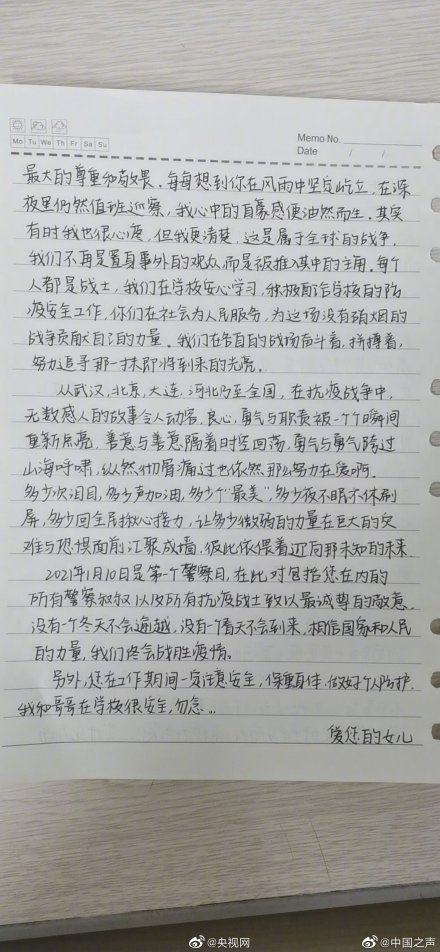 Memo No.
Mo Tu We Th Fr Sa Su
Date / /
最大的尊重和敬畏。每每想到你在风雨中坚定屹立,在深
夜里仍然值班巡察,我心中的自豪感便油然而生。其实
有时我也很心疼,但我更清楚,这是属于全球的战争,
我们不再是置身事外的观众,而是被推入其中的主角。每个
人都是战士,我们在学校安心学习,积极配合学校的防
疫安全工作,你们在社会为人民服务,为这场没有硝烟的
战争贡献自己的力量。我们在各自的战场奋斗着,拼搏着,
努力追寻那一抹即将到来的光亮。
从武汉,北京,大连,河北乃至全国,在抗疫战争中,
无数感人的故事令人动容,良心,勇气与职责被一个个瞬间
重新点亮,善意与善意隔着时空回荡,勇气与勇气跨过
山海呼啸,纵然切肤痛过也依然那么努力在爱啊。
多少次泪目,多少声加油,多少个“最美”,多少夜不眠不休刷
屏,多少回全民揪心接力,让多少微弱的力量在巨大的灾
难与恐惧面前汇聚成墙,彼此依偎着迈向那未知的未来。
2021年1月10日是第一个警察日,在此对包括您在内的
所有警察叔叔以及所有抗疫战士致以最诚尊的敬意。
没有一个冬天不会逾越,没有一个春天不会到来,相信国家和人民
的力量,我们终会战胜疫情。
另外,您在工作期间一定注意安全,保重身体,做好个人防护,
我和哥哥在学校很安全,勿念...
爱您的女儿
@央视网 @中国之声